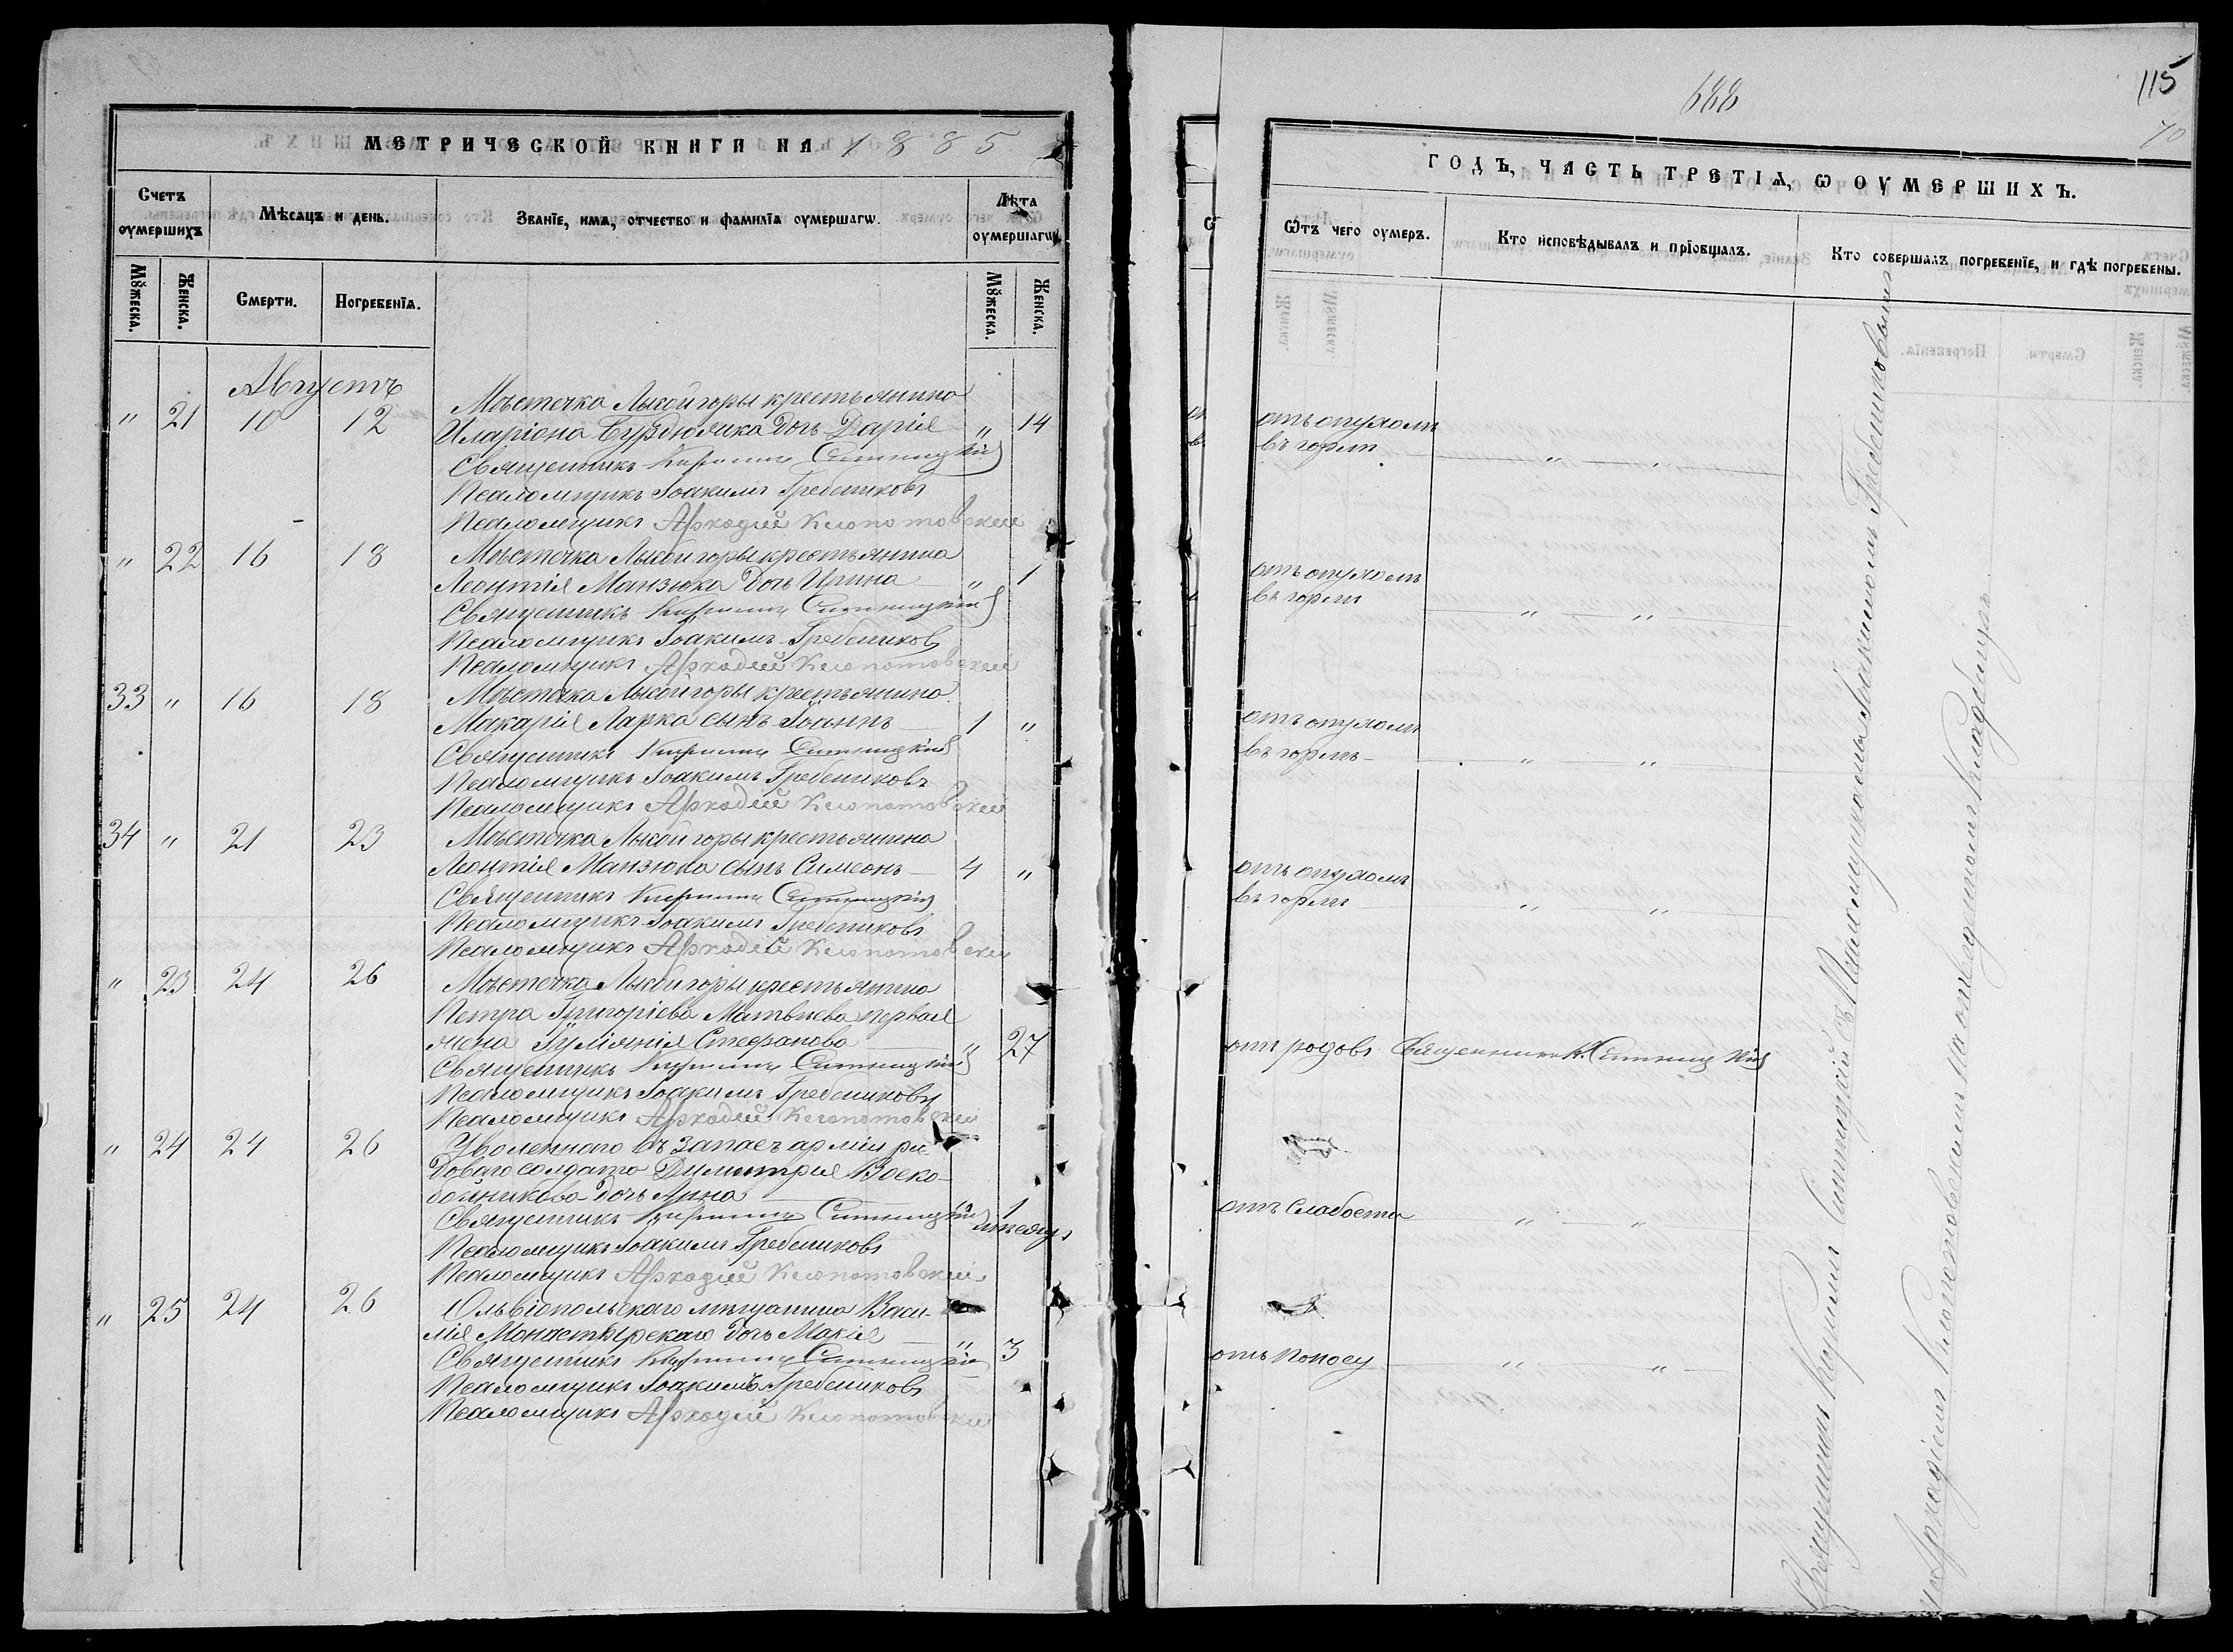 МЕТРИЧЕСКОЙ КНИГИ НА 1885
Счетъ оумершихъ
Мѣсяцъ и день.
Званїе, имя, отчество и фамилїа оумершагѡ.
Лѣта оумершагѡ
Мꙋжеска.
Женска.
Смерти.
Погребенїя.
Мꙋжеска.
Женска.
Августъ
" 21 10 12 Мѣстечка Лысой горы крестьянина
Иларіона Бурдюжика дочь Дарія " 14
Священникъ Кириллъ Ситницкій
Псаломщикъ Іоакимъ Гребениковъ
Псаломщикъ Аркадій Клопотовскій
" 22 16 18 Мѣстечка Лысой горы крестьянина
Леонтія Манзюка дочь Ирина " 1
Священникъ Кириллъ Ситницкій
Псаломщикъ Іоакимъ Гребениковъ
Псаломщикъ Аркадій Клопотовскій
33 " 16 18 Мѣстечка Лысой горы крестьянина
Макарія Ларка сынъ Іоаннъ 1 "
Священникъ Кириллъ Ситницкій
Псаломщикъ Іоакимъ Гребениковъ
Псаломщикъ Аркадій Клопотовскій
34 " 21 23 Мѣстечка Лысой горы крестьянина
Леонтія Манзюка сынъ Симеонъ 4 "
Священникъ Кириллъ Ситницкій
Псаломщикъ Іоакимъ Гребениковъ
Псаломщикъ Аркадій Клопотовскій
" 23 24 26 Мѣстечка Лысой горы крестьянина
Петра Григоріева Матвѣева первая
жена Іуліанія Стефанова " 27
Священникъ Кириллъ Ситницкій
Псаломщикъ Іоакимъ Гребениковъ
Псаломщикъ Аркадій Клопотовскій
" 24 24 26 Уволеннаго въ запасъ арміи ря-
доваго солдата Димитрія Воско-
бойникова дочь Анна
Священникъ Кириллъ Ситницкій " 1 мѣсяцъ
Псаломщикъ Іоакимъ Гребениковъ
Псаломщикъ Аркадій Клопотовскій
" 25 24 26 Ольвіопольскаго мѣщанина Васи-
лія Монастырскаго дочь Марія " 3
Священникъ Кириллъ Ситницкій
Псаломщикъ Іоакимъ Гребениковъ
Псаломщикъ Аркадій Клопотовскій
688
115
70
ГОДЪ, ЧАСТЬ ТРЕТІЯ, Ѡ ОУМЕРШИХЪ.
Ѿтъ чего оумеръ.
Кто исповѣдывалъ и прїобщалъ.
Кто совершалъ погребенїе, и гдѣ погребены.
отъ опухоли
въ горлѣ " "
отъ опухоли
въ горлѣ " "
отъ опухоли
въ горлѣ " "
отъ опухоли
въ горлѣ " "
отъ родовъ Священникъ К. Ситницкій
отъ слабости " "
отъ поносу " "
Священникъ Кириллъ Ситницкій съ Псаломщиками Іоакимомъ Гребениковымъ
и Аркадіемъ Клопотовскимъ на отведенномъ кладбищѣ